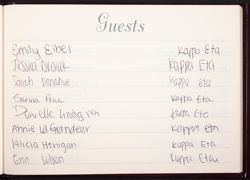 Guests
Emily Eibel Kappa Eta
Jessica Kappa Eta
Sarah Donahue Kappa eta
Sarina Kappa Eta
Danielle Lindgren Kappa Eta
Annie LaGrandeur Kappa Eta
Felicia Henigan Kappa Eta
Erin Kappa Eta